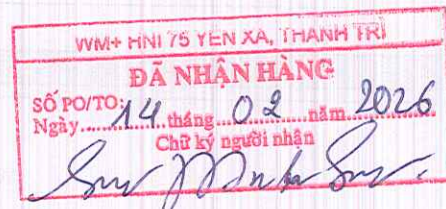 WM+ HNI 75 YÊN XÁ, THANH TRÌ
ĐÃ NHẬN HÀNG
SỐ PO/TO:
Ngày 14 tháng 02 năm 2026
Chữ ký người nhận